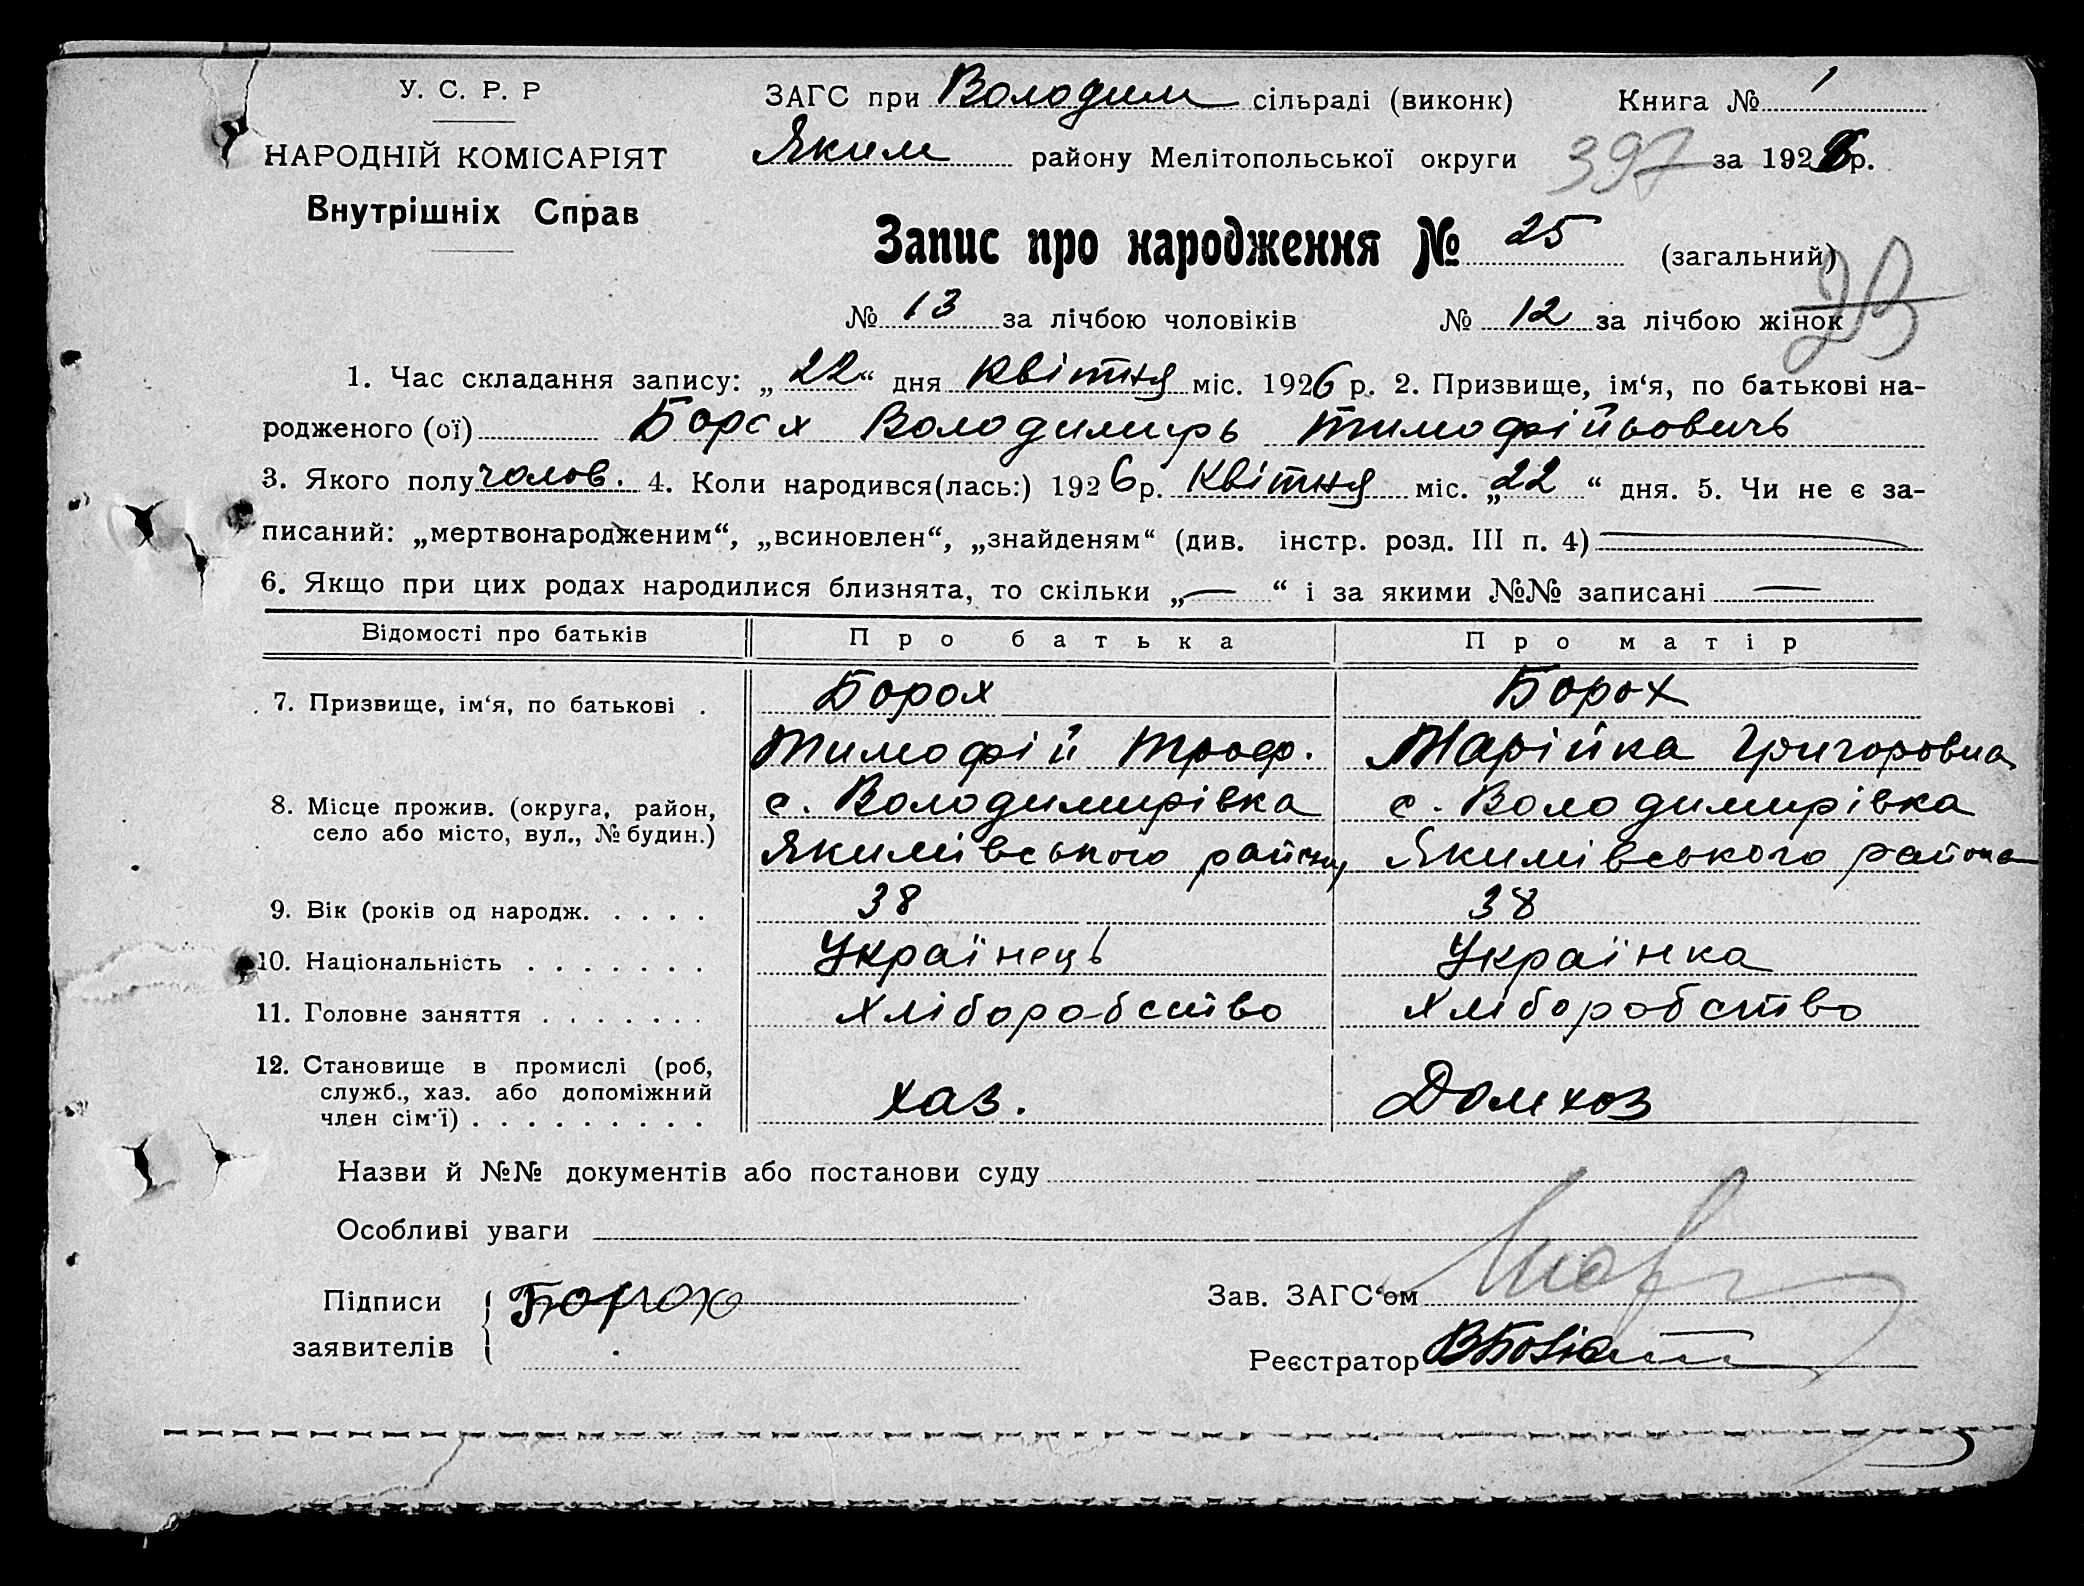 У. С. Р. Р
НАРОДНІЙ КОМІСАРІЯТ
Внутрішніх Справ
ЗАГС при Володим сільраді (виконк) Книга № 1
Яким району Мелітопольської округи 397 за 1926 р.
Запис про народження № 25 (загальний)
№ 13 за лічбою чоловіків № 12 за лічбою жінок
1. Час складання запису: „22“ дня Квітня міс. 1926 р. 2. Призвище, ім‘я, по батькові на-
родженого (ої) Борох Володимирь Тимофійьовичь
3. Якого полу чолов. 4. Коли народився(лась:) 1926 р. Квітня міс. „22“ дня. 5. Чи не є за-
писаний: „мертвонародженим“, „всиновлен“, „знайденям“ (див. інстр. розд. III п. 4) —
6. Якщо при цих родах народилися близнята, то скільки „—“ і за якими №№ записані —
Відомості про батьків Про батька Про матір
7. Призвище, ім‘я, по батькові . Борох Борох
Тимофій Троф. Марійка Григоровна
8. Місце прожив. (округа, район, с. Володимирівка с. Володимирівка
село або місто, вул., № будин.) Якимівського району Якимівського района
9. Вік (років од народж. . . . . 38 38
10. Національність . . . . . . . Українець Українка
11. Головне заняття . . . . . . . Хліборобство Хліборобство
12. Становище в промислі (роб,
служб., хаз. або допоміжний хаз. Домхоз
член сім‘ї) . . . . . . . . .
Назви й №№ документів або постанови суду
Особливі уваги
Підписи Борох Зав. ЗАГС‘ом
заявителів Реєстратор